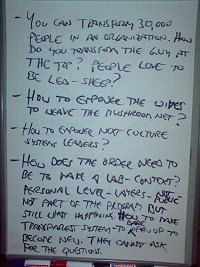 - YOU CAN TRANSFORM 30,000
PEOPLE IN AN ORGANIZATION. HOW
DO YOU TRANSFORM THE GUY AT
THE TOP? PEOPLE LOVE TO
BE LED - SHEEP?
- HOW TO EMPOWER THE WIVES
TO WEAVE THE MUSHROOM NET?
- HOW TO EMPOWER NOT CULTURE
SYSTEMS LEADERS?
- HOW DOES THE ORDER NEED TO
BE TO MAKE A LAB-CONTEXT?
PERSONAL LEVEL - LAYERS - NOT PUBLIC
NOT PART OF THE PROGRAM BUT
STILL WHAT HAPPENING. HOW TO MAKE
TRANSPARENT SYSTEM - TO OPEN UP TO
BECOME NEW. THEY CANNOT ASK
FOR THE QUESTIONS.